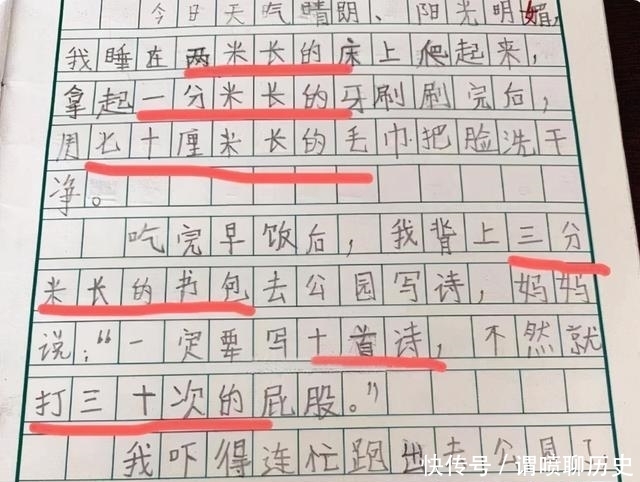 今日天吃晴朗、阳光明媚,
我睡在两米长的床上爬起来,
拿起一分米长的牙刷刷完后,
用七十厘米长的毛巾把脸洗干
净。
吃完早饭后,我背上三分
米长的书包去公园写诗,妈妈
说:“一定要写十首诗,不然就
打三十次的屁股。”
我吓得连忙跑出去公园了
快传号/谓喷聊历史